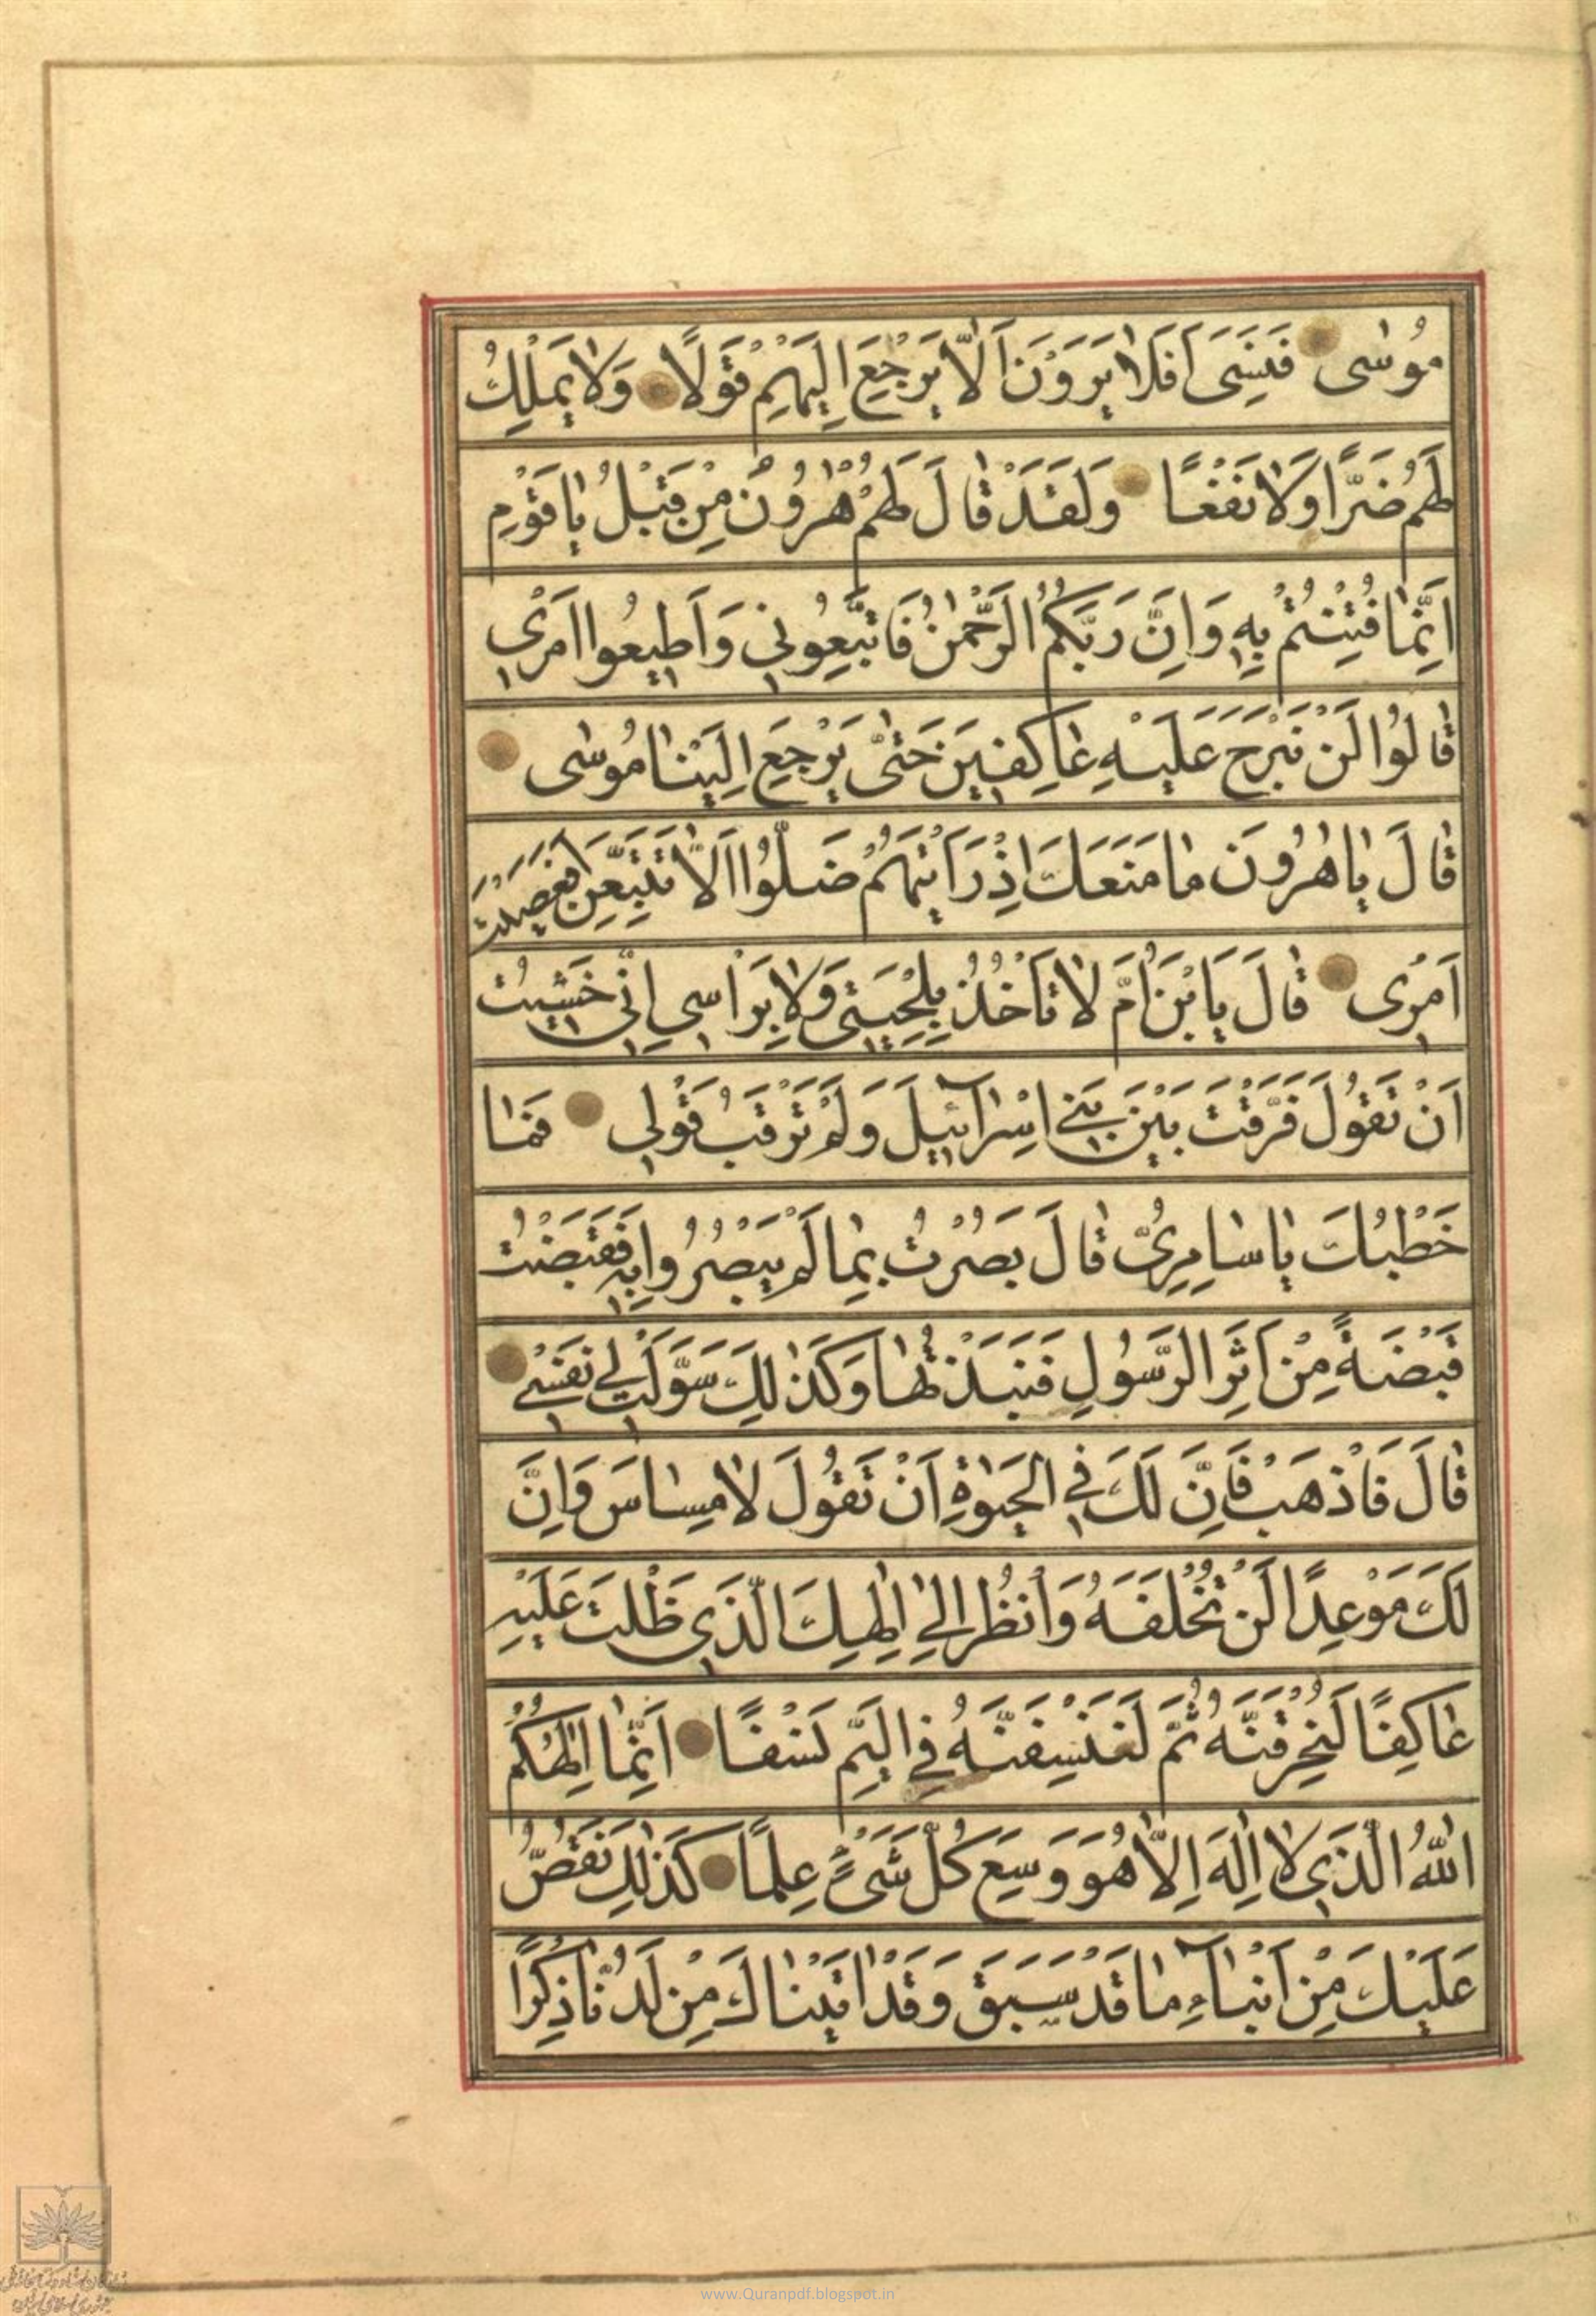 مُوسٰى فَنَسِىَ اَفَلَا يَرَوْنَ اَلَّا يَرْجِعَ اِلَيْهِمْ قَوْلًا وَلَا يَمْلِكُ
لَهُمْ ضَرًّا وَلَا نَفْعًا وَلَقَدْ قٰالَ لَهُمْ هٰرُونُ مِنْ قَبْلُ يٰا قَوْمِ
اِنَّمٰا فُتِنْتُمْ بِهِ وَاِنَّ رَبَّكُمُ الرَّحْمٰنُ فَاتَّبِعُونِي وَاَطِيعُوا اَمْرِي
قٰالُوا لَنْ نَبْرَحَ عَلَيْهِ عٰاكِفِينَ حَتّٰى يَرْجِعَ اِلَيْنٰا مُوسٰى
قٰالَ يٰا هٰرُونَ مٰا مَنَعَكَ اِذْ رَاَيْتَهُمْ ضَلُّوا اَلَّا تَتَّبِعَنِ اَفَعَصَيْتَ
اَمْرِى قٰالَ يَا بْنَ اُمَّ لٰا تَاْخُذْ بِلِحْيَتِى وَلٰا بِرَاْسِي اِنِّى خَشِيتُ
اَنْ تَقُولَ فَرَّقْتَ بَيْنَ بَنِي اِسْرٰآئِيلَ وَلَمْ تَرْقُبْ قَوْلِي فَمٰا
خَطْبُكَ يٰا سٰامِرِىُّ قٰالَ بَصُرْتُ بِمٰا لَمْ يَبْصُرُوا بِهِ فَقَبَضْتُ
قَبْضَةً مِنْ اَثَرِ الرَّسُولِ فَنَبَذْتُهٰا وَكَذٰلِكَ سَوَّلَتْ لِي نَفْسِي
قٰالَ فَاذْهَبْ فَاِنَّ لَكَ فِي الْحَيٰوةِ اَنْ تَقُولَ لٰا مِسٰاسَ وَاِنَّ
لَكَ مَوْعِدًا لَنْ تُخْلَفَهُ وَانْظُرْ اِلٰى اِلٰهِكَ الَّذِي ظَلْتَ عَلَيْهِ
عٰاكِفًا لَنُحَرِّقَنَّهُ ثُمَّ لَنَنْسِفَنَّهُ فِي الْيَمِّ نَسْفًا اِنَّمٰا اِلٰهُكُمُ
اللّٰهُ الَّذِي لٰا اِلٰهَ اِلَّا هُوَ وَسِعَ كُلَّ شَىْءٍ عِلْمًا كَذٰلِكَ نَقُصُّ
عَلَيْكَ مِنْ اَنْبٰآءِ مٰا قَدْ سَبَقَ وَقَدْ اٰتَيْنٰاكَ مِنْ لَدُنّٰا ذِكْرًا
www.Quranpdf.blogspot.in